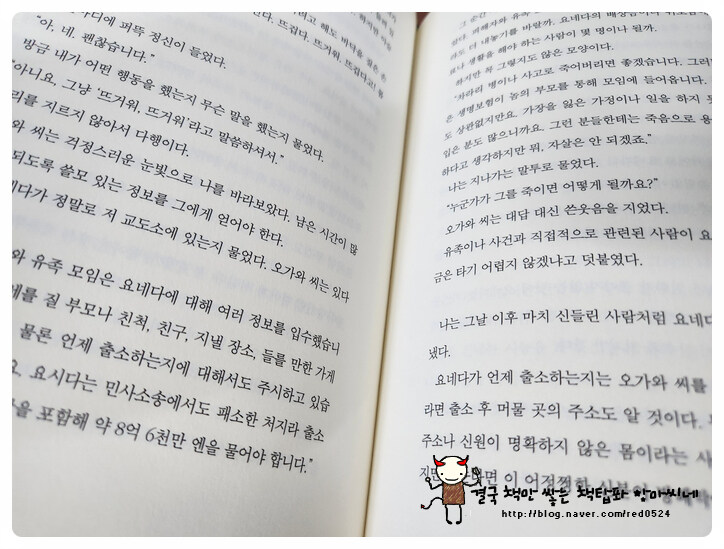 마디에 퍼뜩 정신이 들었다.
"아, 네. 괜찮습니다."
방금 내가 어떤 행동을 했는지 무슨 말을 했는지 물었다.
"아니요, 그냥 '뜨거워, 뜨거워'라고 말씀하셔서."
리를 지르지 않아서 다행이다.
와 씨는 걱정스러운 눈빛으로 나를 바라보았다. 남은 시간이 많
되도록 쓸모 있는 정보를 그에게 얻어야 한다.
네다가 정말로 저 교도소에 있는지 물었다. 오가와 씨는 있다
와 유족 모임은 요네다에 대해 여러 정보를 입수했습니
애를 질 부모나 친척, 친구, 지낼 장소, 들를 만한 가게
물론 언제 출소하는지에 대해서도 주시하고 있습
요. 요시다는 민사소송에서도 패소한 처지라 출소
을 포함해 약 8억 6천만 엔을 물어야 합니다."
도 더 내놓기를 바랄까. 요네다의
생활을 해야 하는 사람이 몇 명이나 될까.
하지만 꼭 그렇지도 않은 모양이다.
"차라리 병이나 사고로 죽어버리면 좋겠습니다. 그러
은 생명보험이 놈의 부모를 통해 모임에 들어옵니다.
도 상관없지만요. 가장을 잃은 가정이나 일을 하지 못
입은 분도 많으니까요. 그런 분들한테는 죽음으로 용
하다고 생각하지만 뭐, 자살은 안 되겠죠."
나는 지나가는 말투로 물었다.
"누군가가 그를 죽이면 어떻게 될까요?"
오가와 씨는 대답 대신 쓴웃음을 지었다.
유족이나 사건과 직접적으로 관련된 사람이 요
금은 타기 어렵지 않겠냐고 덧붙였다.
나는 그날 이후 마치 신들린 사람처럼 요네다
냈다.
요네다가 언제 출소하는지는 오가와 씨를
라면 출소 후 머물 곳의 주소도 알 것이다.
주소나 신원이 명확하지 않은 몸이라는 사
이 어정쩡한
결국 책만 쌓는 책탑파 항마씨네
http://blog.naver.com/red0524